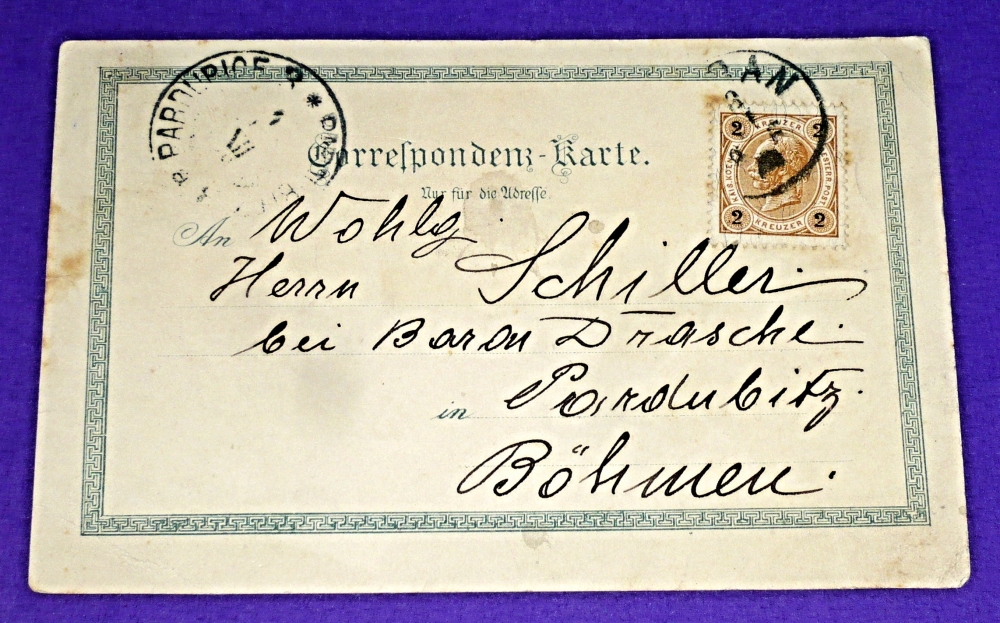 PARDUBICE 2 *
RAN
Correspondenz-Karte.
Nur für die Adresse.
2 KREUZER 2
KAIS. KOE ESTERR. POST
2 KREUZER 2
An Wohlg
Herrn Schiller.
bei Baron Drasche.
in Pardubitz.
Böhmen.